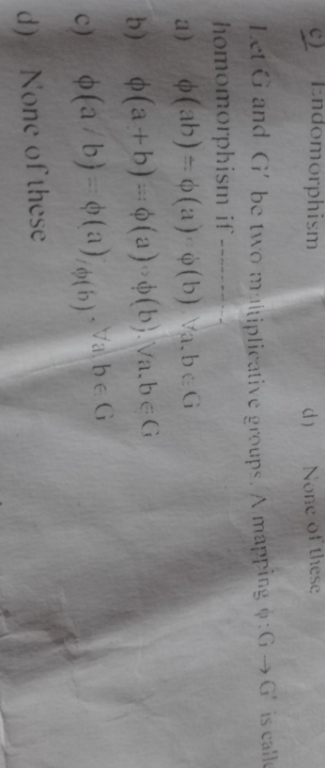 c) Endomorphism d) None of these
Let G and G' be two multiplicative groups. A mapping φ : G → G' is calle
homomorphism if ---------
a) φ(ab) = φ(a) ∘ φ(b) ∀a,b∈G
b) φ(a+b) = φ(a)∘φ(b), ∀a,b∈G
c) φ(a/b) = φ(a)/φ(b), ∀a,b∈G
d) None of these